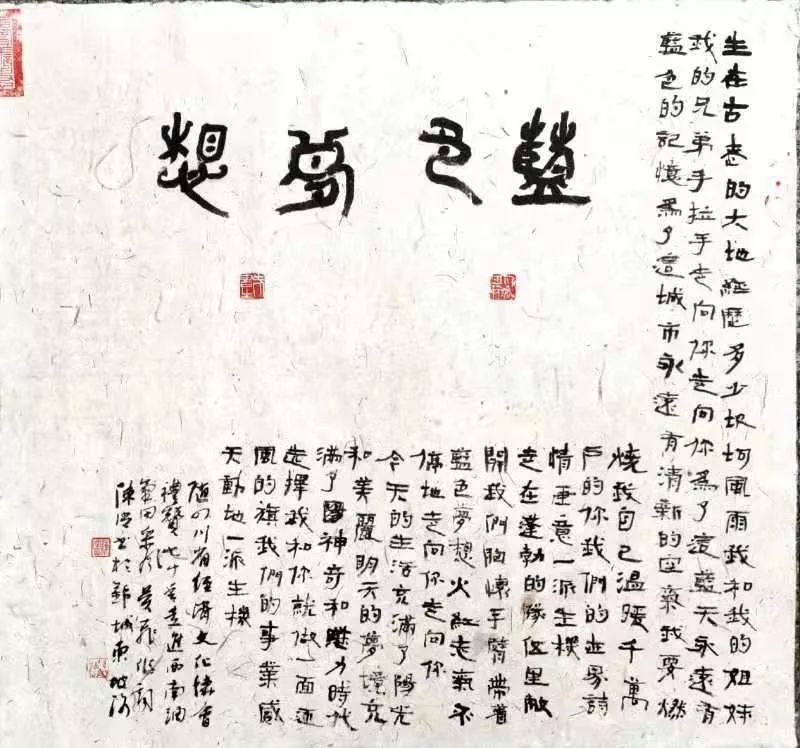 藍色夢想
生在古老的大地經歷多少坎坷風雨我和我的姐妹
我的兄弟手拉手走向你走向你為了這藍天永遠有
藍色的記憶為了這城市永遠有清新的空氣我要燃
燒我自己溫暖千萬
戶的你我們的世界詩
情畫意一派生機
走在蓬勃的隊伍里敞
開我們胸懷手臂帶着
藍色夢想火紅走氣不
停地走向你走向你
今天的生活充滿了陽光
和美麗明天的夢境充
滿了神奇和魅力時代
選擇我和你就做一面迎
風的旗我們的事業感
天動地一派生機
隨四川省經濟文化協會
禮贊 走進西南油
氣田采
陳 書於鄴城東